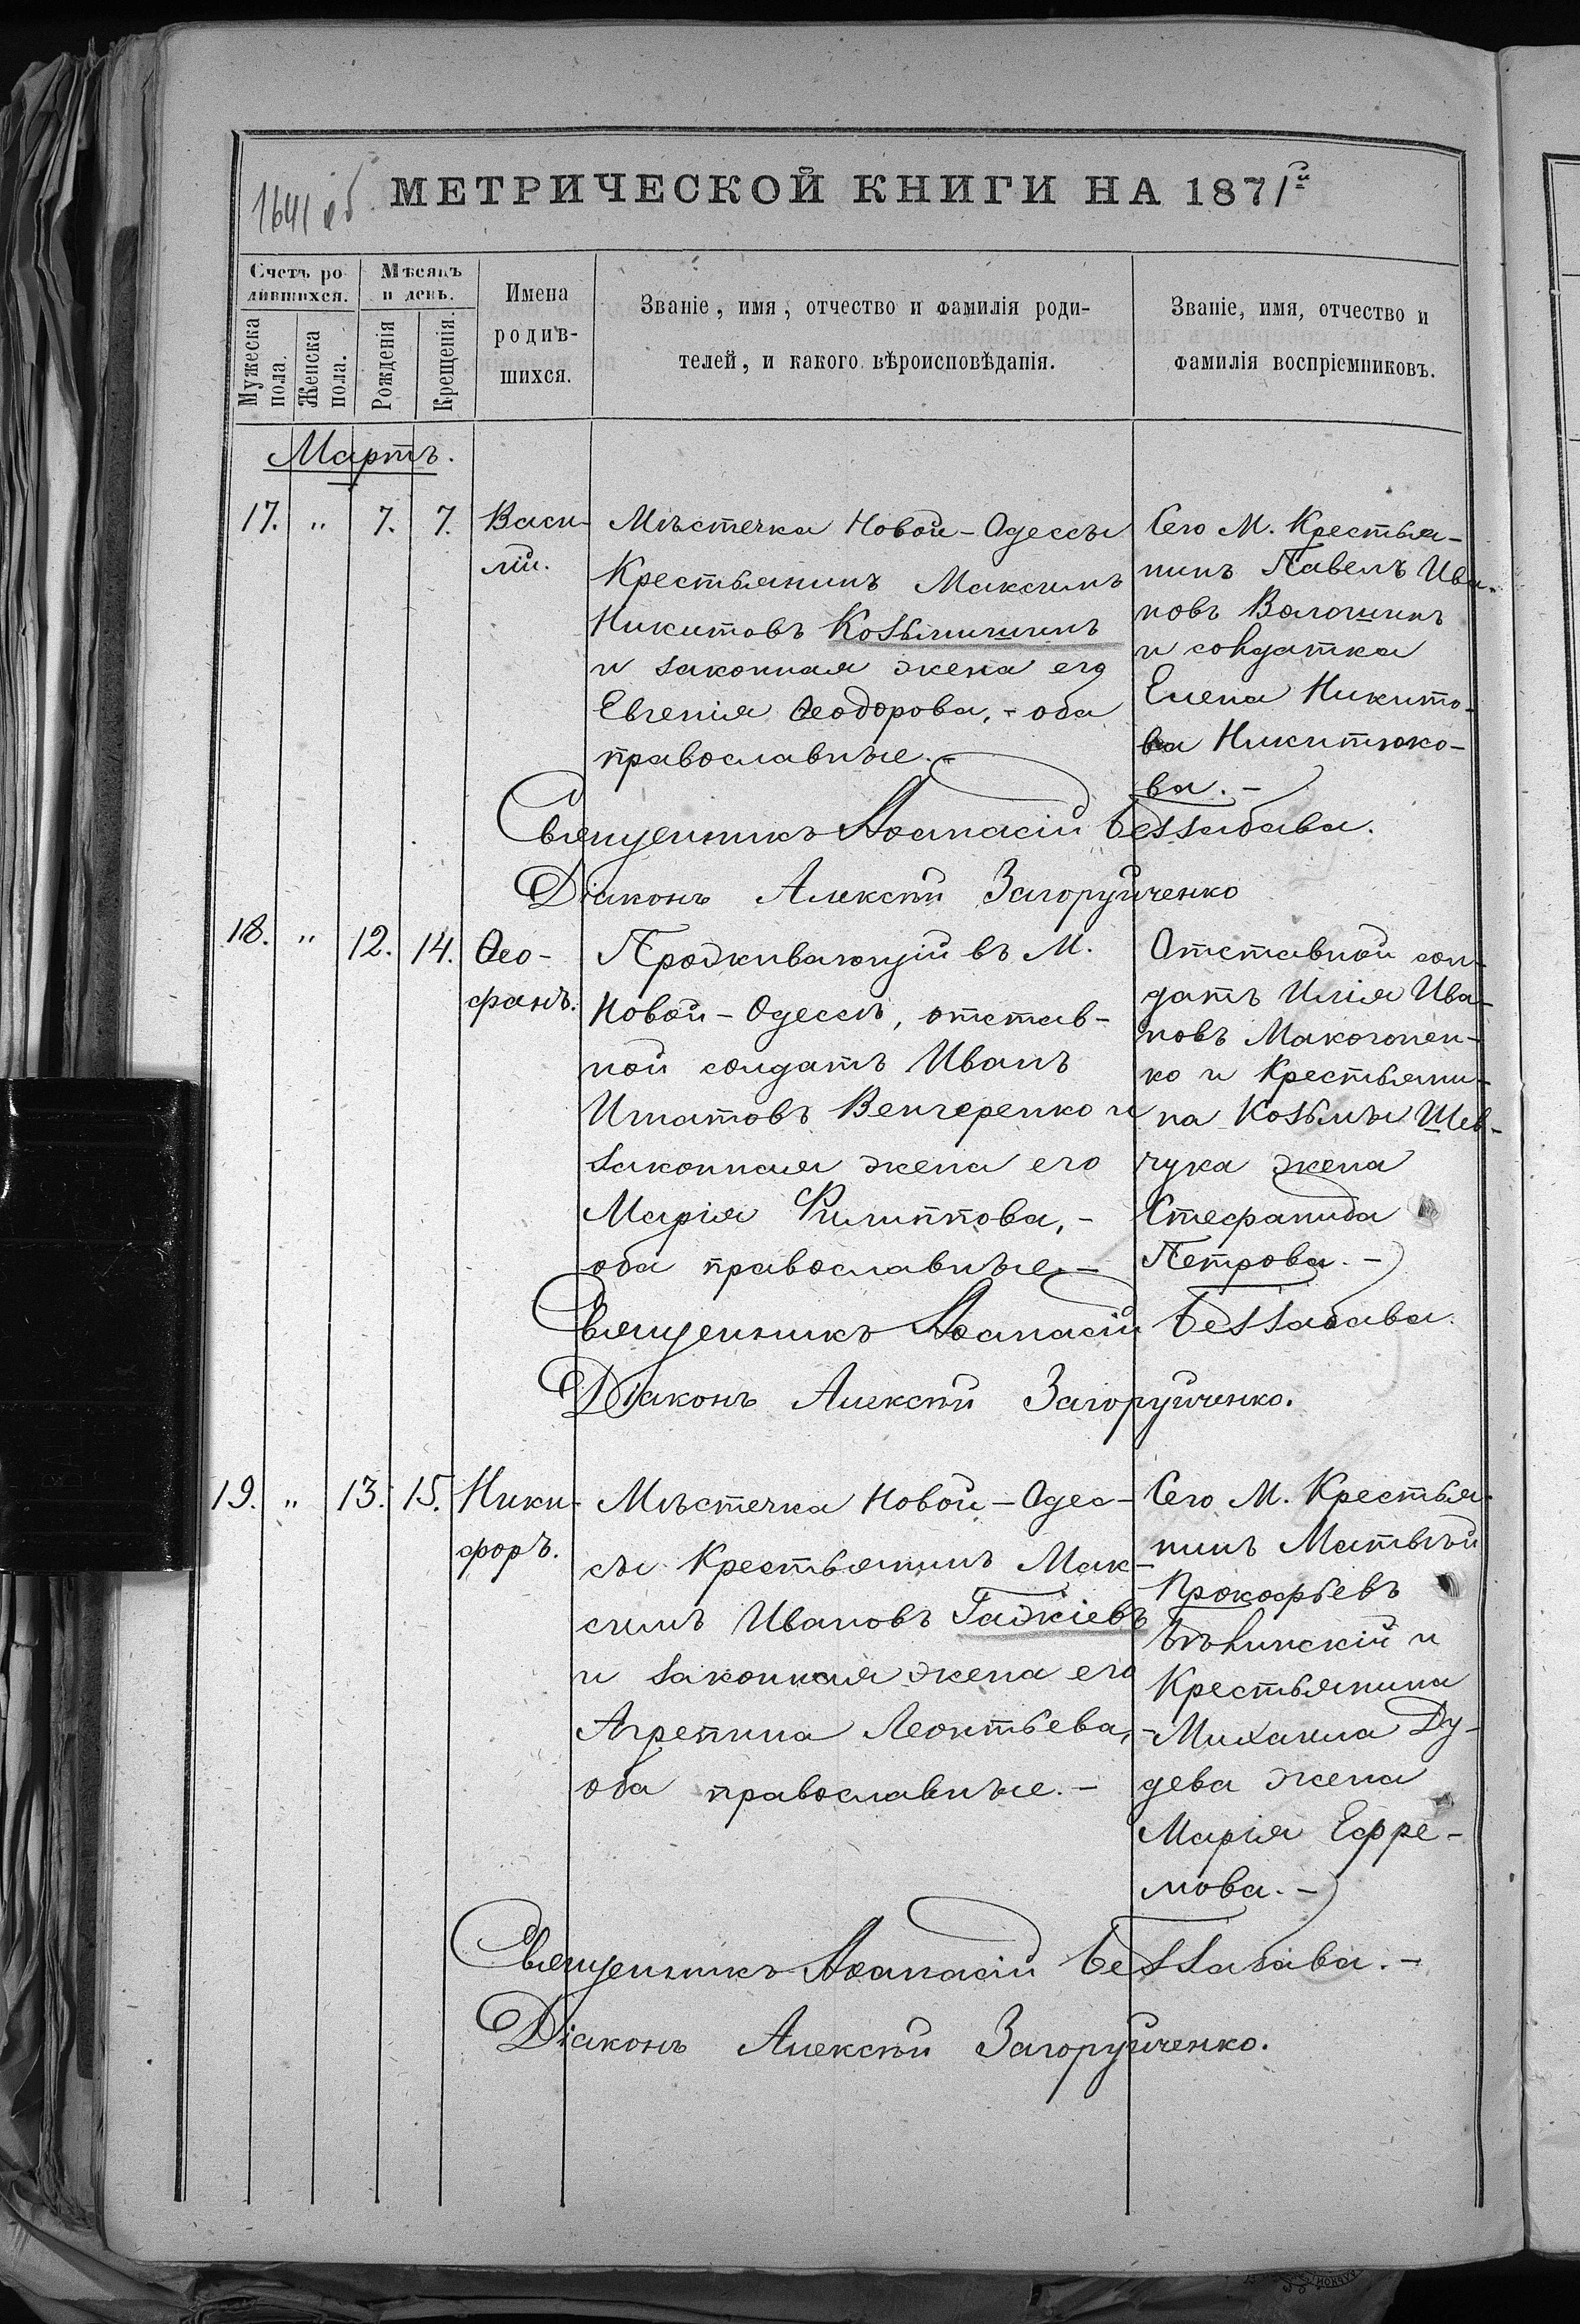 1641 об
МЕТРИЧЕСКОЙ КНИГИ НА 1871й
Счетъ ро-
дившихся.
Мѣсяцъ
и день.
Мужеска
пола.
Женска
пола.
Рожденія
Крещенія.
Имена
родив-
шихся.
Званіе, имя, отчество и фамилія роди-
телей, и какого вѣроисповѣданія.
Званіе, имя, отчество и
фамилія воспріемниковъ.
Мартъ.
17. „ 7. 7.
Васи-
лій.
Мѣстечка Новой-Одессы
Крестьянинъ Максимъ
Никитовъ Козьмишинъ
и законная жена его
Евгенія Ѳеодорова, - оба
православные.-
Сего М. Крестья-
нинъ Павелъ Ива-
новъ Волошинъ
и солдатка
Елена Никито-
ва Никитюко-
ва.-
Священникъ Аѳанасій Беззабава.
Діаконъ Алексѣй Загоруйченко
18. „ 12. 14.
Ѳео-
фанъ.
Проживающій въ М.
Новой-Одессѣ, отстав-
ной солдатъ Иванъ
Игнатовъ Венгеренко и
законная жена его
Марія Филиппова, -
оба православные.-
Отставной сол-
датъ Илія Ива-
новъ Макогонен-
ко и Крестьяни-
на Козьмы Шев-
чука жена
Стефанида
Петрова.-
Священникъ Аѳанасій Беззабава.
Діаконъ Алексѣй Загоруйченко.
19. „ 13. 15.
Ники-
форъ.
Мѣстечка Новой-Одес-
сы Крестьянинъ Мак-
симъ Ивановъ Гаджіевъ
и законная жена его
Агрепина Леонтьева,-
оба православные.-
Сего М. Крестья-
нинъ Матвѣй
Прокофьевъ
Бѣлинскій и
Крестьянина
Михаила Ду-
дева жена
Марія Ефре-
мова.-
Священникъ Аѳанасій Беззабава.-
Діаконъ Алексѣй Загоруйченко.